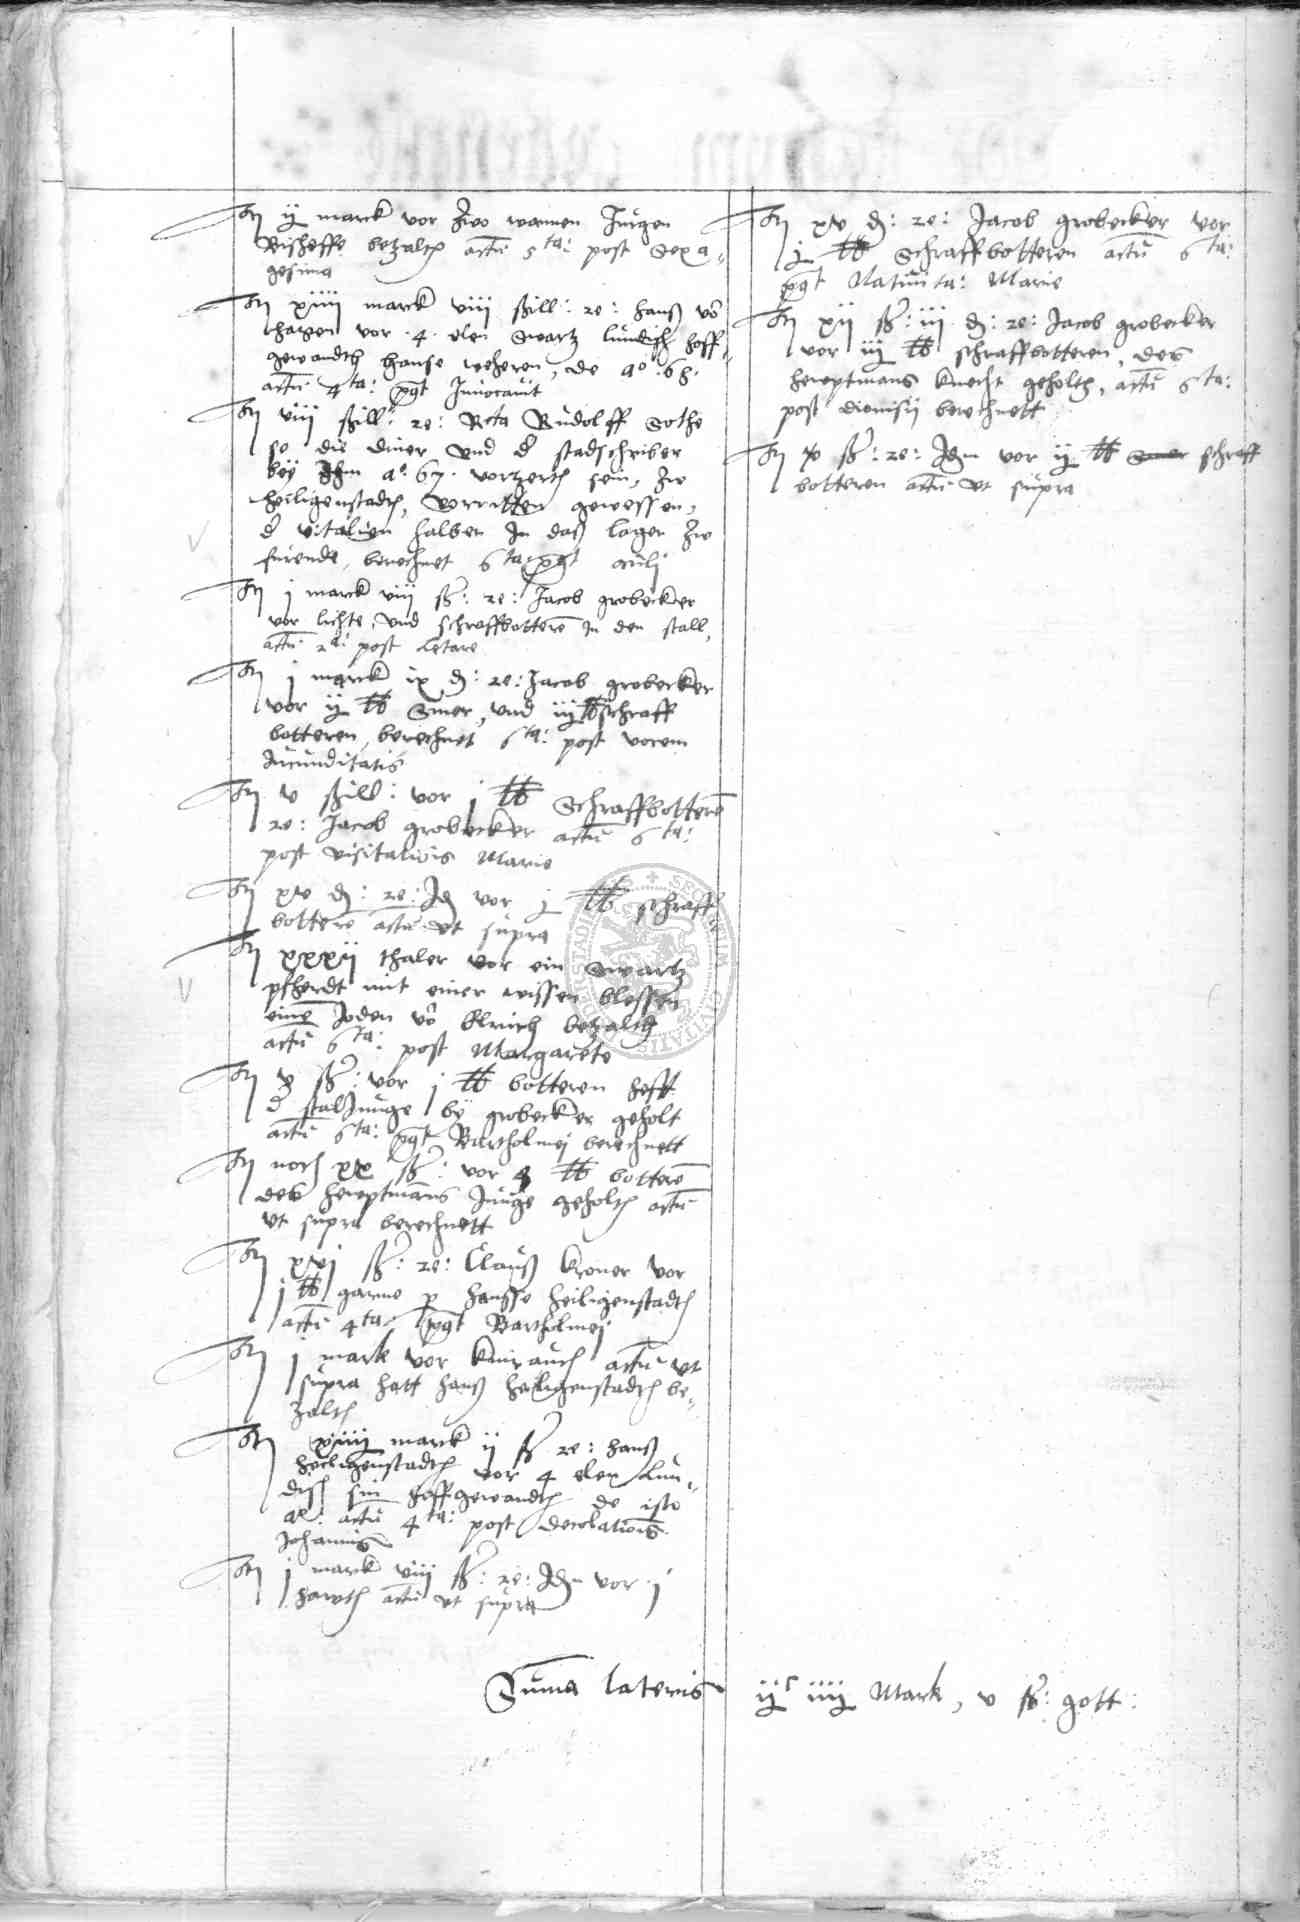 It ij marck vor zwo wannen Jurgen
Bisheffe betzalth actū 5ta: post Sexa=
gesima
It xiiij marck viij ßill: re: Hanß vō
Hagen vor 4 elen Swartz lundisch hoff=
gewandth Hanse weheren, de ao 68
actū 4ta: pqt Inuocauit
It viij ßill: re: Rudolff Bothe
so die diner und d stadschriber
bey Ihm ao 67 vorzerth sein, zw
Heiligenstadth, vorritten gewessen,
d vitalien halben In daß lager zw
furende, berechnet 6ta pqt
It j marck viij ß: re: Jacob grobecker
vor lichte, und schraffbotterē In den stall,
actū 2a: post Letare
It j marck ix d: re: Jacob grobecker
vor ij lb Smer, und iij lb schraff
botteren, berechnet 6ta: post vocem
Jucunditatis
It v ßill: vor j lb Schraffbotterē
re: Jacob grobecker actū 6ta:
post visitatiōis Marie
It xv d: re: Idē vor j lb schraff
botterē actū ut supra
It xxxij thaler vor ein Swartz
pfherdt mit einer wissen blessen
einē Joden vō Elrich betzalth
actū 6ta: post Margarete
It v ß: vor j lb botteren hefft
d stalJunge by grobecker geholt
actū 6ta: pqt Bartholmej berechnett
It noch xx ß: vor 4 lb botterē
des heuptmans Junge geholth actū
ut supra berechnett
It xvj ß: re: Clauß Kroner vor
j lb garne p Hansse Heiligenstadth
actū 4ta: pqt Bartholmej
It j mark vor Knirauch actū ut
supra hatt Hanß Heiligenstadth be=
zalth
It xiiij marck ij ß re: Hanß
Heiligenstadth vor 4 elen Lun=
disch sin hoffgewandth de isto
ao: actū 4ta: post decolatiōis
Johannis
It j marck viij ß: re: Idē vor j
actū ut supra
It xv d: re: Jacob grobecker vor
j lb Schraffbotteren actū 6ta:
pqt Natiuita: Marie
It xij ß: iij d: re: Jacob grobecker
vor iij lb schraffbotteren, des
heuptmans knecht geholth, actū 6ta:
post dionisij berechnett
It x ß: re: Idm vor ij lb Smer schraff
botteren actū ut supra
Suma lateris ijc iiij Mark, v ß: gott: